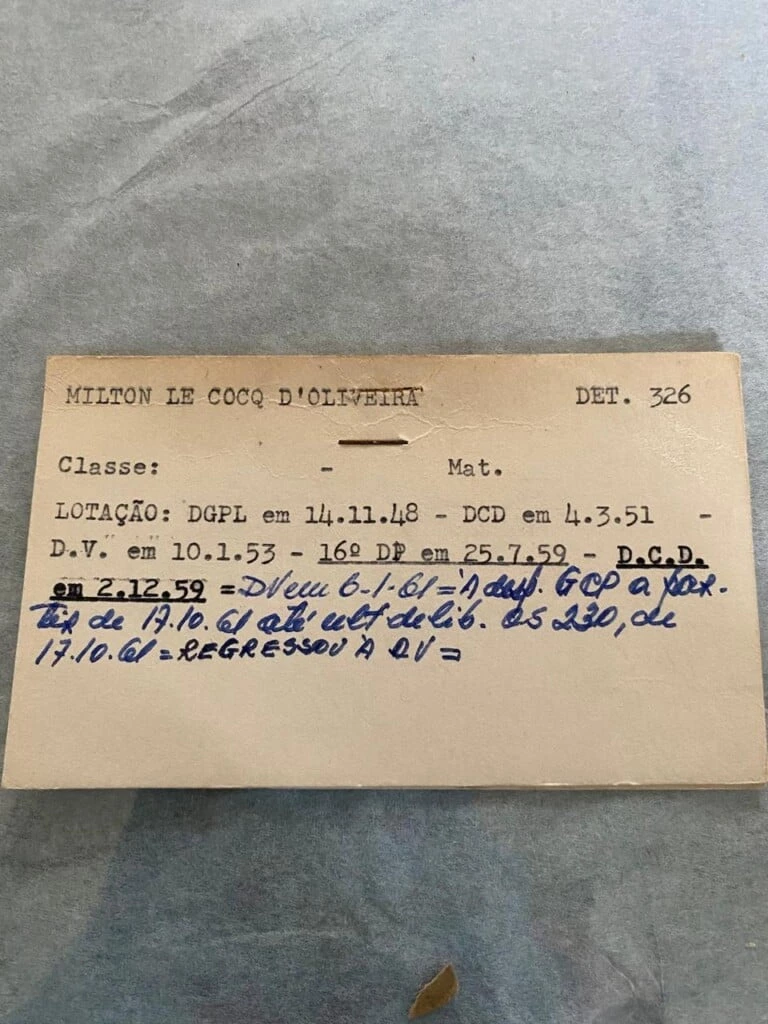 MILTON LE COCQ D'OLIVEIRA DET. 326
Classe: - Mat.
LOTAÇÃO: DGPL em 14.11.48 - DCD em 4.3.51 -
D.V. em 10.1.53 - 16º DP em 25.7.59 - D.C.D.
em 2.12.59 = DV em 6-1-61 = À disp. GCP a par-
tir de 17.10.61 até ult delib. OS 230, de
17.10.61 = REGRESSOU À DV =